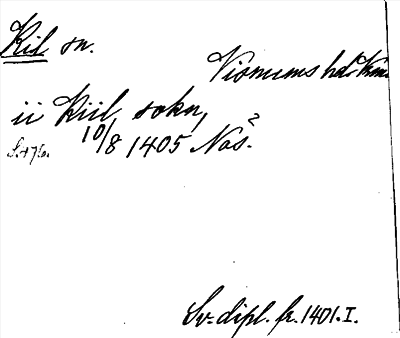 Kil sn.
Visnums hd. Vrm.
ii Kiil sokn,
10/8 1405 Nos 2.
S. 476.
Sv. dipl. fr. 1401. I.